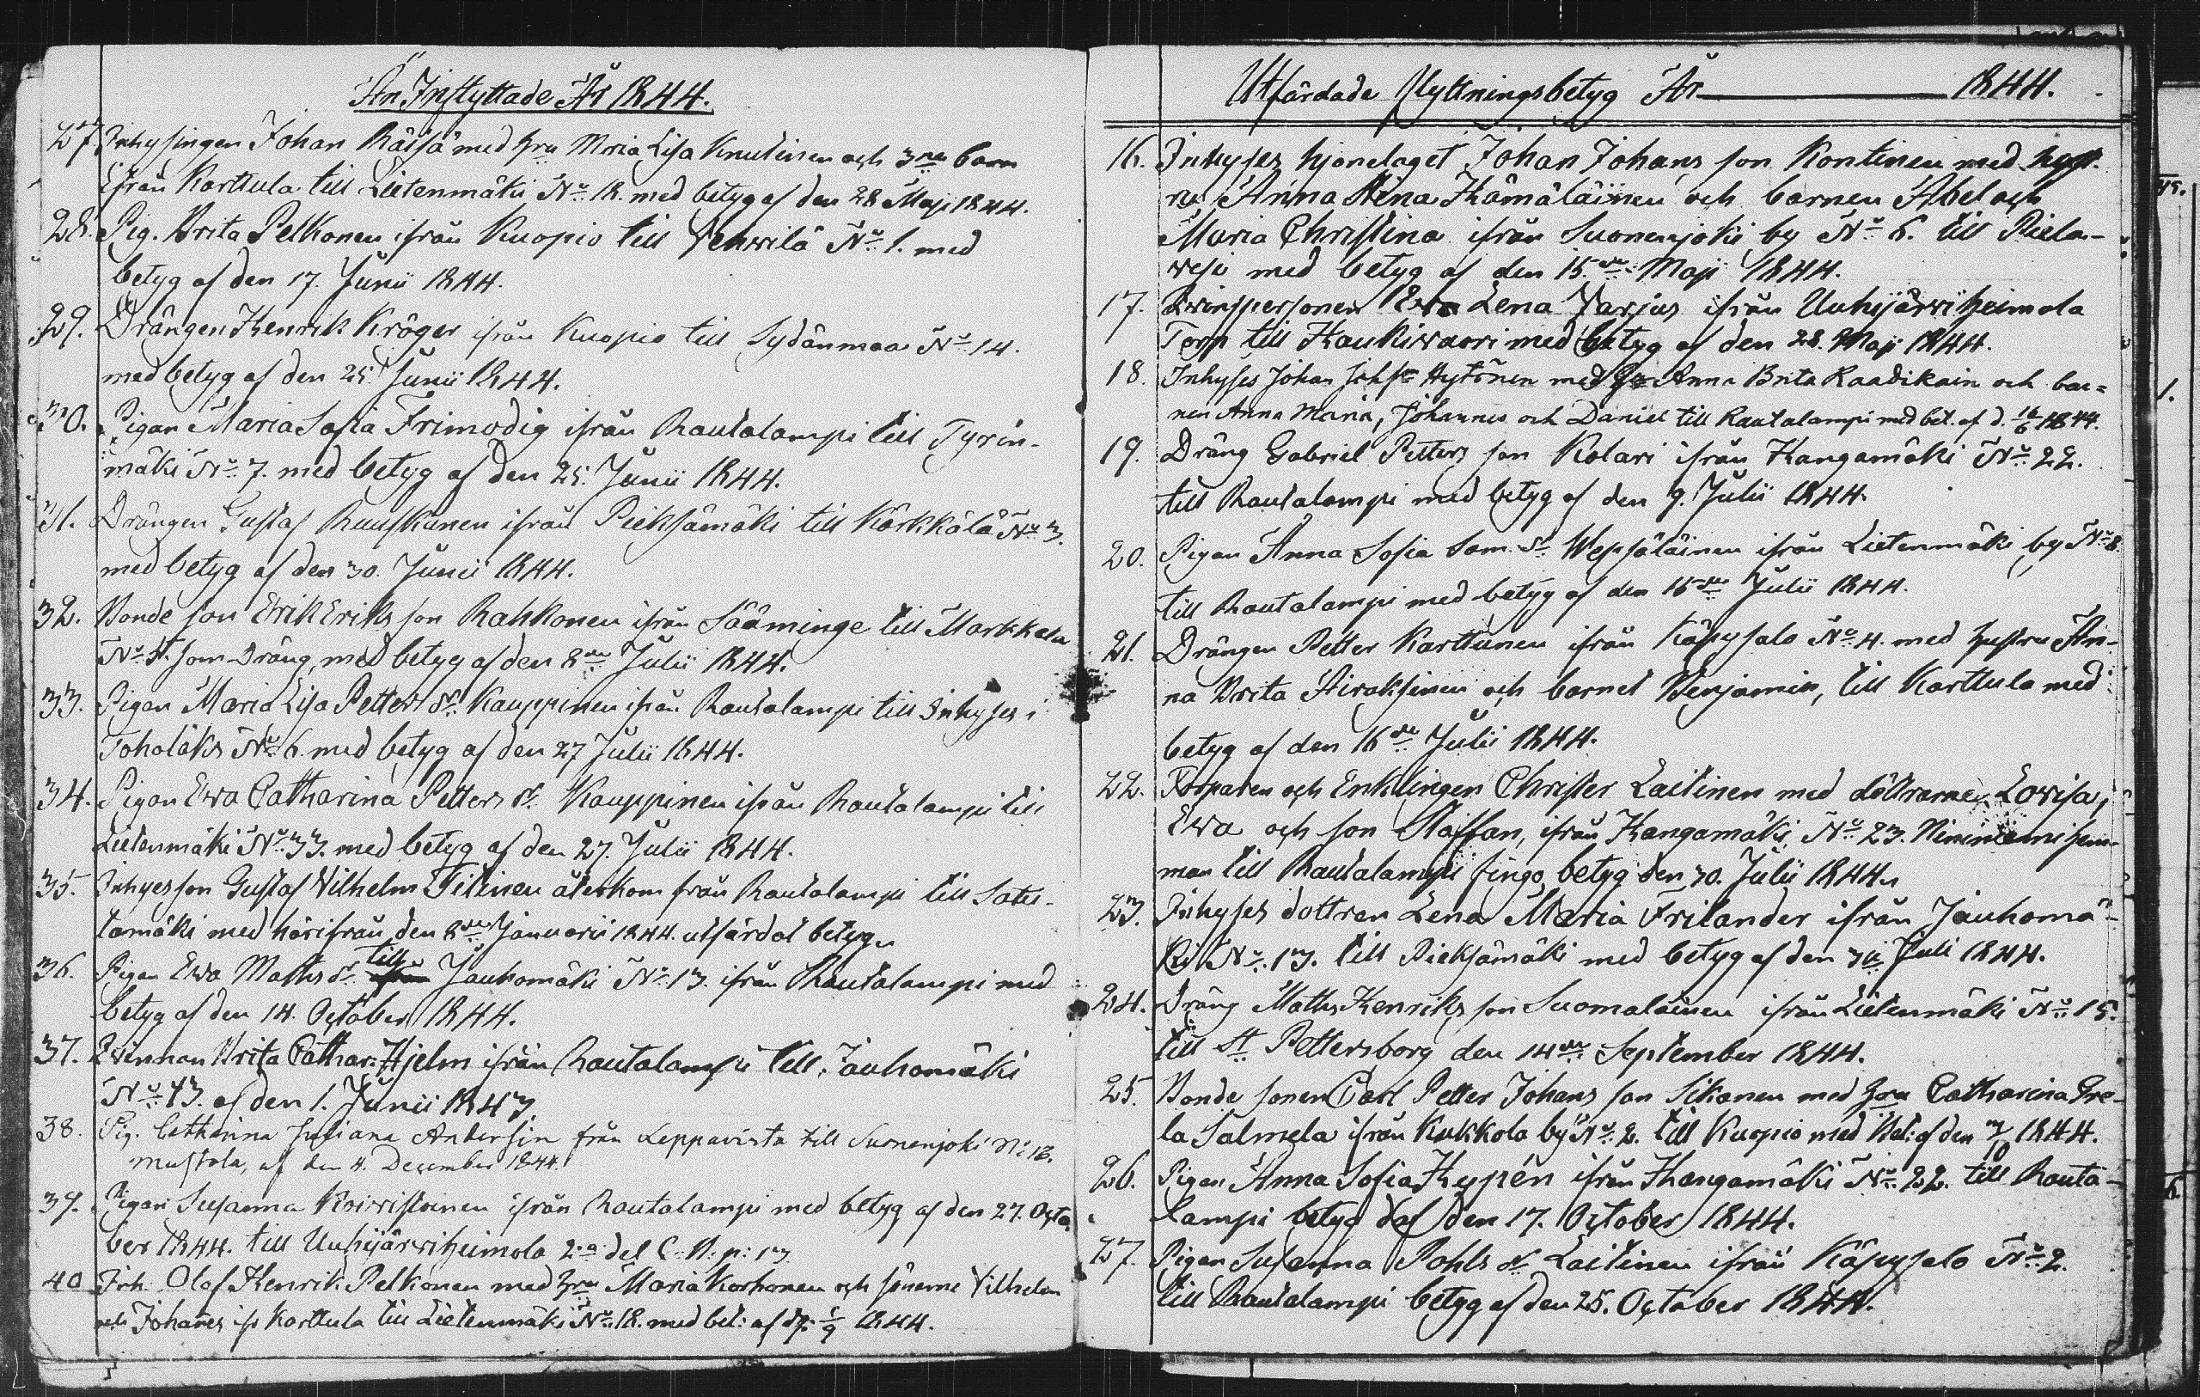 Än Inflyttade År 1844.
27. Inhysingen Johan Räisä med hru Maria Lisa Knutinen och 3ne barn
ifrån Karttula till Lietenmäki No 18. med betyg af den 28 Maji 1844.
28. Pig. Brita Pelkonen ifrån Kuopio till Vehvilä No 1. med
betyg af den 17. Junii 1844.
29. Drängen Henrik Kröger ifrån Kuopio till Sydänmaa No 14.
med betyg af den 25. Junii 1844.
30. Pigan Maria Sofia Frimodig ifrån Rautalampi till Tyrin-
mäki No 7. med betyg af den 25. Junii 1844.
31. Drängen Gustaf Rauskanen ifrån Pieksämäki till Kärkkälä No 3.
med betyg af den 30. Junii 1844.
32. Bonde son Erik Eriks son Rahkonen ifrån Sääminge till Markkala
No 4. som Dräng med betyg af den 8de Julii 1844.
33. Pigan Maria Lisa Petters dr Kauppinen ifrån Rautalampi till Inhyses i
Toholaks No 6. med betyg af den 27 Julii 1844.
34. Pigan Ewa Catharina Petters dr Kauppinen ifrån Rautalampi till
Lietenmäki No 33. med betyg af den 27. Julii 1844.
35. Inhyes son Gustaf Vilhelm Titinen återkom från Rautalampi till Satu-
lamäki med härifrån den 8de Januarii 1844 utfärdat betyg.
36. Pigan Ewa Matts dr till Jauhomäki No 13. ifrån Rautalampi med
betyg af den 14. October 1844.
37. Qvinnan Brita Cathar: Hjelm ifrån Rautalampi till Jauhomäki
No 13. af den 1. Junii 1843.
38. Pig. Catharina Juliana Andersin från Leppävirta till Suonenjoki No 12.
Mustola, af den 4. December 1844.
39. Pigan Susanna Koivistoinen ifrån Rautalampi med betyg af den 27. Octo
ber 1844. till Uuhijärviheimola 2:a del C. B. p: 13
40 Inh. Olof Henrik Pelkonen med hru Maria Korhonen och sönerne Vilhelm
och Johanes ifr Karttula till Lietenmäki No 18. med bet: af d. 1/9 1844.
Utfärdade Flyttningsbetyg År 1844.
16. Inhyses hjonelaget Johan Johans son Kontinen med hust-
ru Anna Lena Hämäläinen och barnen Abel och
Maria Christina ifrån Suonenjoki by No 6. till Piela-
vesi med betyg af den 15de Maji 1844.
17. Qvinspersonen Ewa Lena Varjus ifrån Uuhijärviheimola
Torp till Haukivuori med betyg af den 28. Maji 1844.
18. Inhyses Johan Johss. Hytönen med hr Anna Brita Raadikain och bar=
nen Anna Maria, Johannes och Daniel till Rautalampi med bet. af d. 16/6 1844.
19. Dräng Gabriel Petters son Kolari ifrån Kangamäki No 22.
till Rautalampi med betyg af den 9. Julii 1844.
20. Pigan Anna Sofia Sam. dr Wepsäläinen ifrån Lietenmäki by No 8.
till Rautalampi med betyg af den 15de Julii 1844.
21. Drängen Petter Karttunen ifrån Käpysalo No 4. med hustru An-
na Brita Airaksinen och barnet Benjamin, till Karttula med
betyg af den 16de Julii 1844.
22. Torparen och Enklingen Christer Laitinen med döttrarne Lovisa,
Ewa och son Staffan, ifrån Kangamäki No 23. Niininiemi sam-
man till Rautalampi fingo betyg den 30. Julii 1844.
23. Inhyses dottren Lena Maria Frilander ifrån Jauhomä-
ki No 13. till Pieksämäki med betyg af den 30 Juli 1844.
24. Dräng Matts Henriks son Suomalainen ifrån Lietenmäki No 15.
till St Pettersborg den 14de September 1844.
25. Bonde sonen Carl Petter Johans son Sikanen med hru Catharina Gre-
ta Salmela ifrån Kukkola by No 2. till Kuopio med Bet: af den 7/10 1844.
26. Pigan Anna Sofia Hypén ifrån Kangamäki No 22. till Rauta-
lampi betyg af den 17. October 1844.
27. Pigan Susanna Pohls dr Laitinen ifrån Käpysalo No 2.
till Rautalampi betyg af den 25. October 1844.